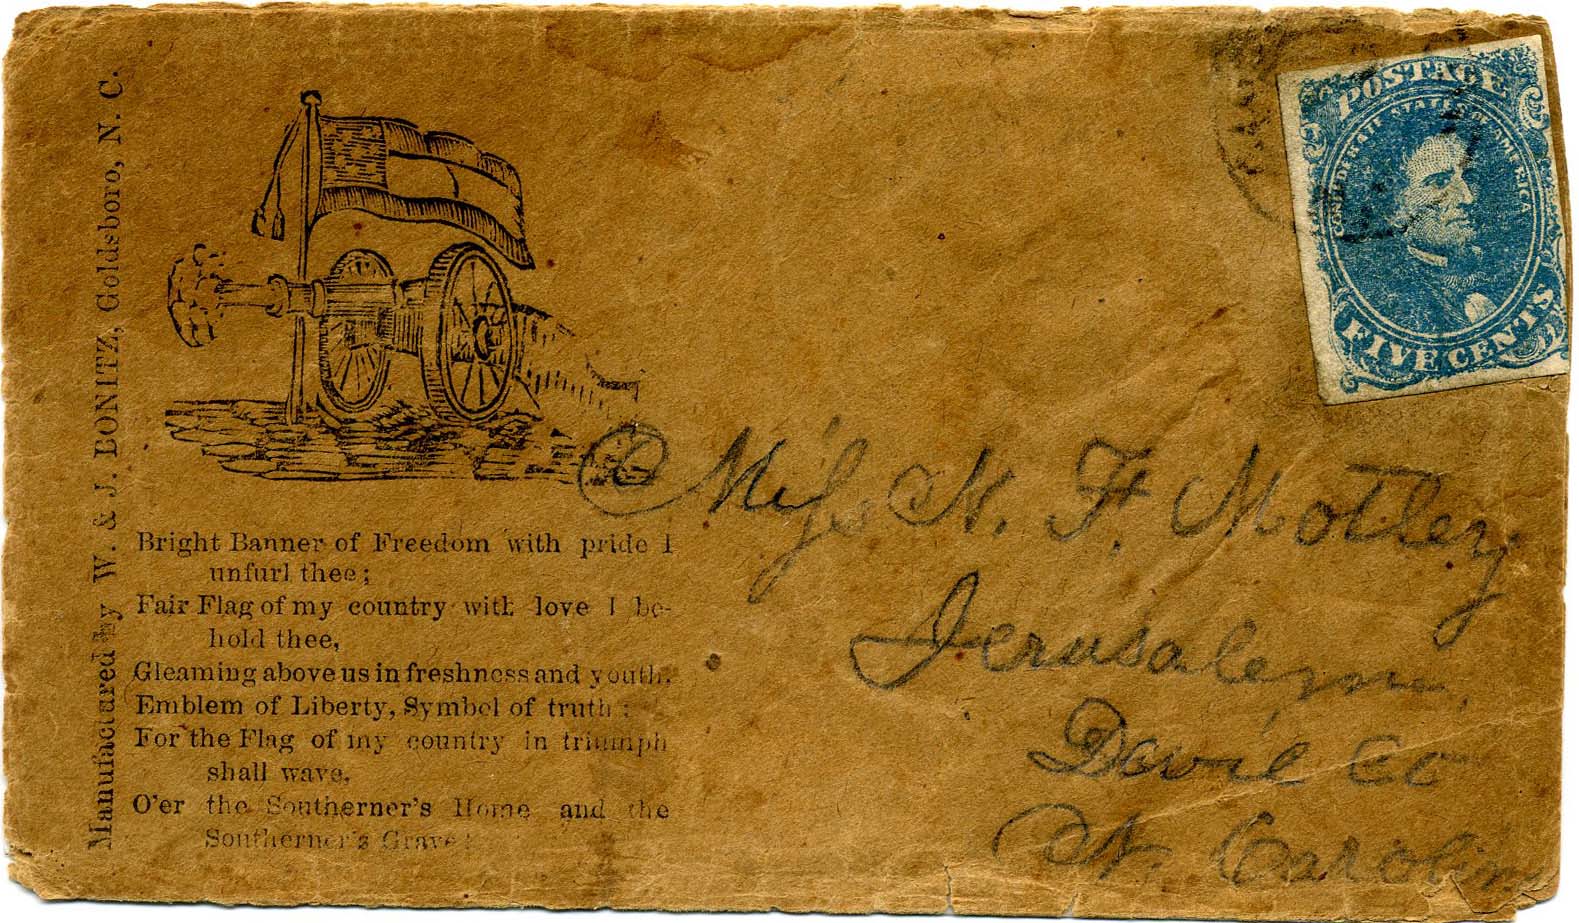 Manufactured by W. & J. BONITZ, Goldsboro, N. C.
Bright Banner of Freedom with pride I
unfurl thee;
Fair Flag of my country with love I be-
hold thee,
Gleaming above us in freshness and youth;
Emblem of Liberty, Symbol of truth;
For the Flag of my country in triumph
shall wave,
O'er the Southerner's Home and the
Southerner's Grave!
POSTAGE
CONFEDERATE STATES OF AMERICA
FIVE CENTS
N. F. Motley
Jerusalem
Davie Co
N. Carolina